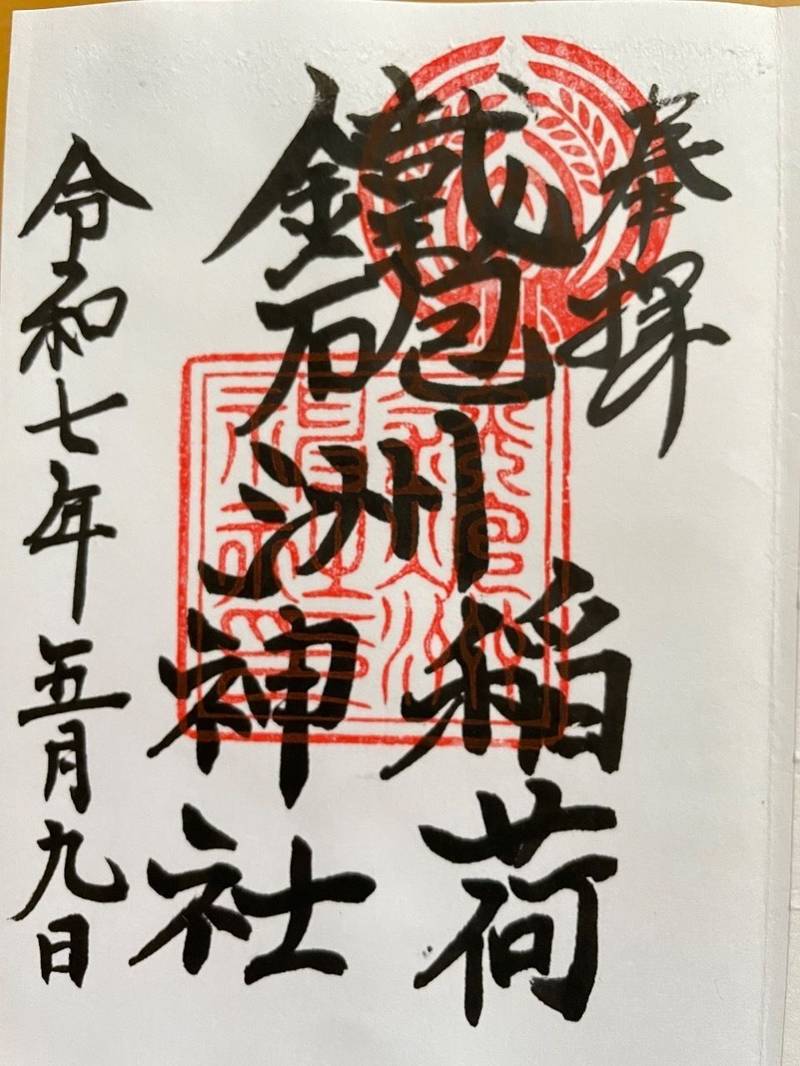 奉拝
鐵砲洲
稲荷
神社
令和七年五月九日